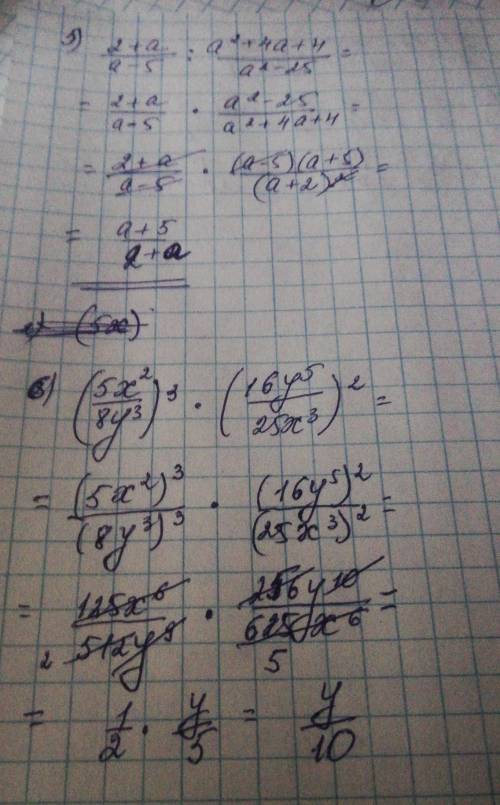 5) (2+a)/(a-5) : (a²+4a+4)/(a²-25) =
= (2+a)/(a-5) · (a²-25)/(a²+4a+4) =
= (2+a)/(a-5) · ((a-5)(a+5))/((a+2)²) =
= (a+5)/(2+a)
(5x)
6) (5x²/8y³)³ · (16y⁵/25x³)² =
= (5x²)³/(8y³)³ · (16y⁵)²/(25x³)² =
= 125x⁶/512y⁹ · 256y¹⁰/625x⁶ =
2 5
= 1/2 · y/5 = y/10